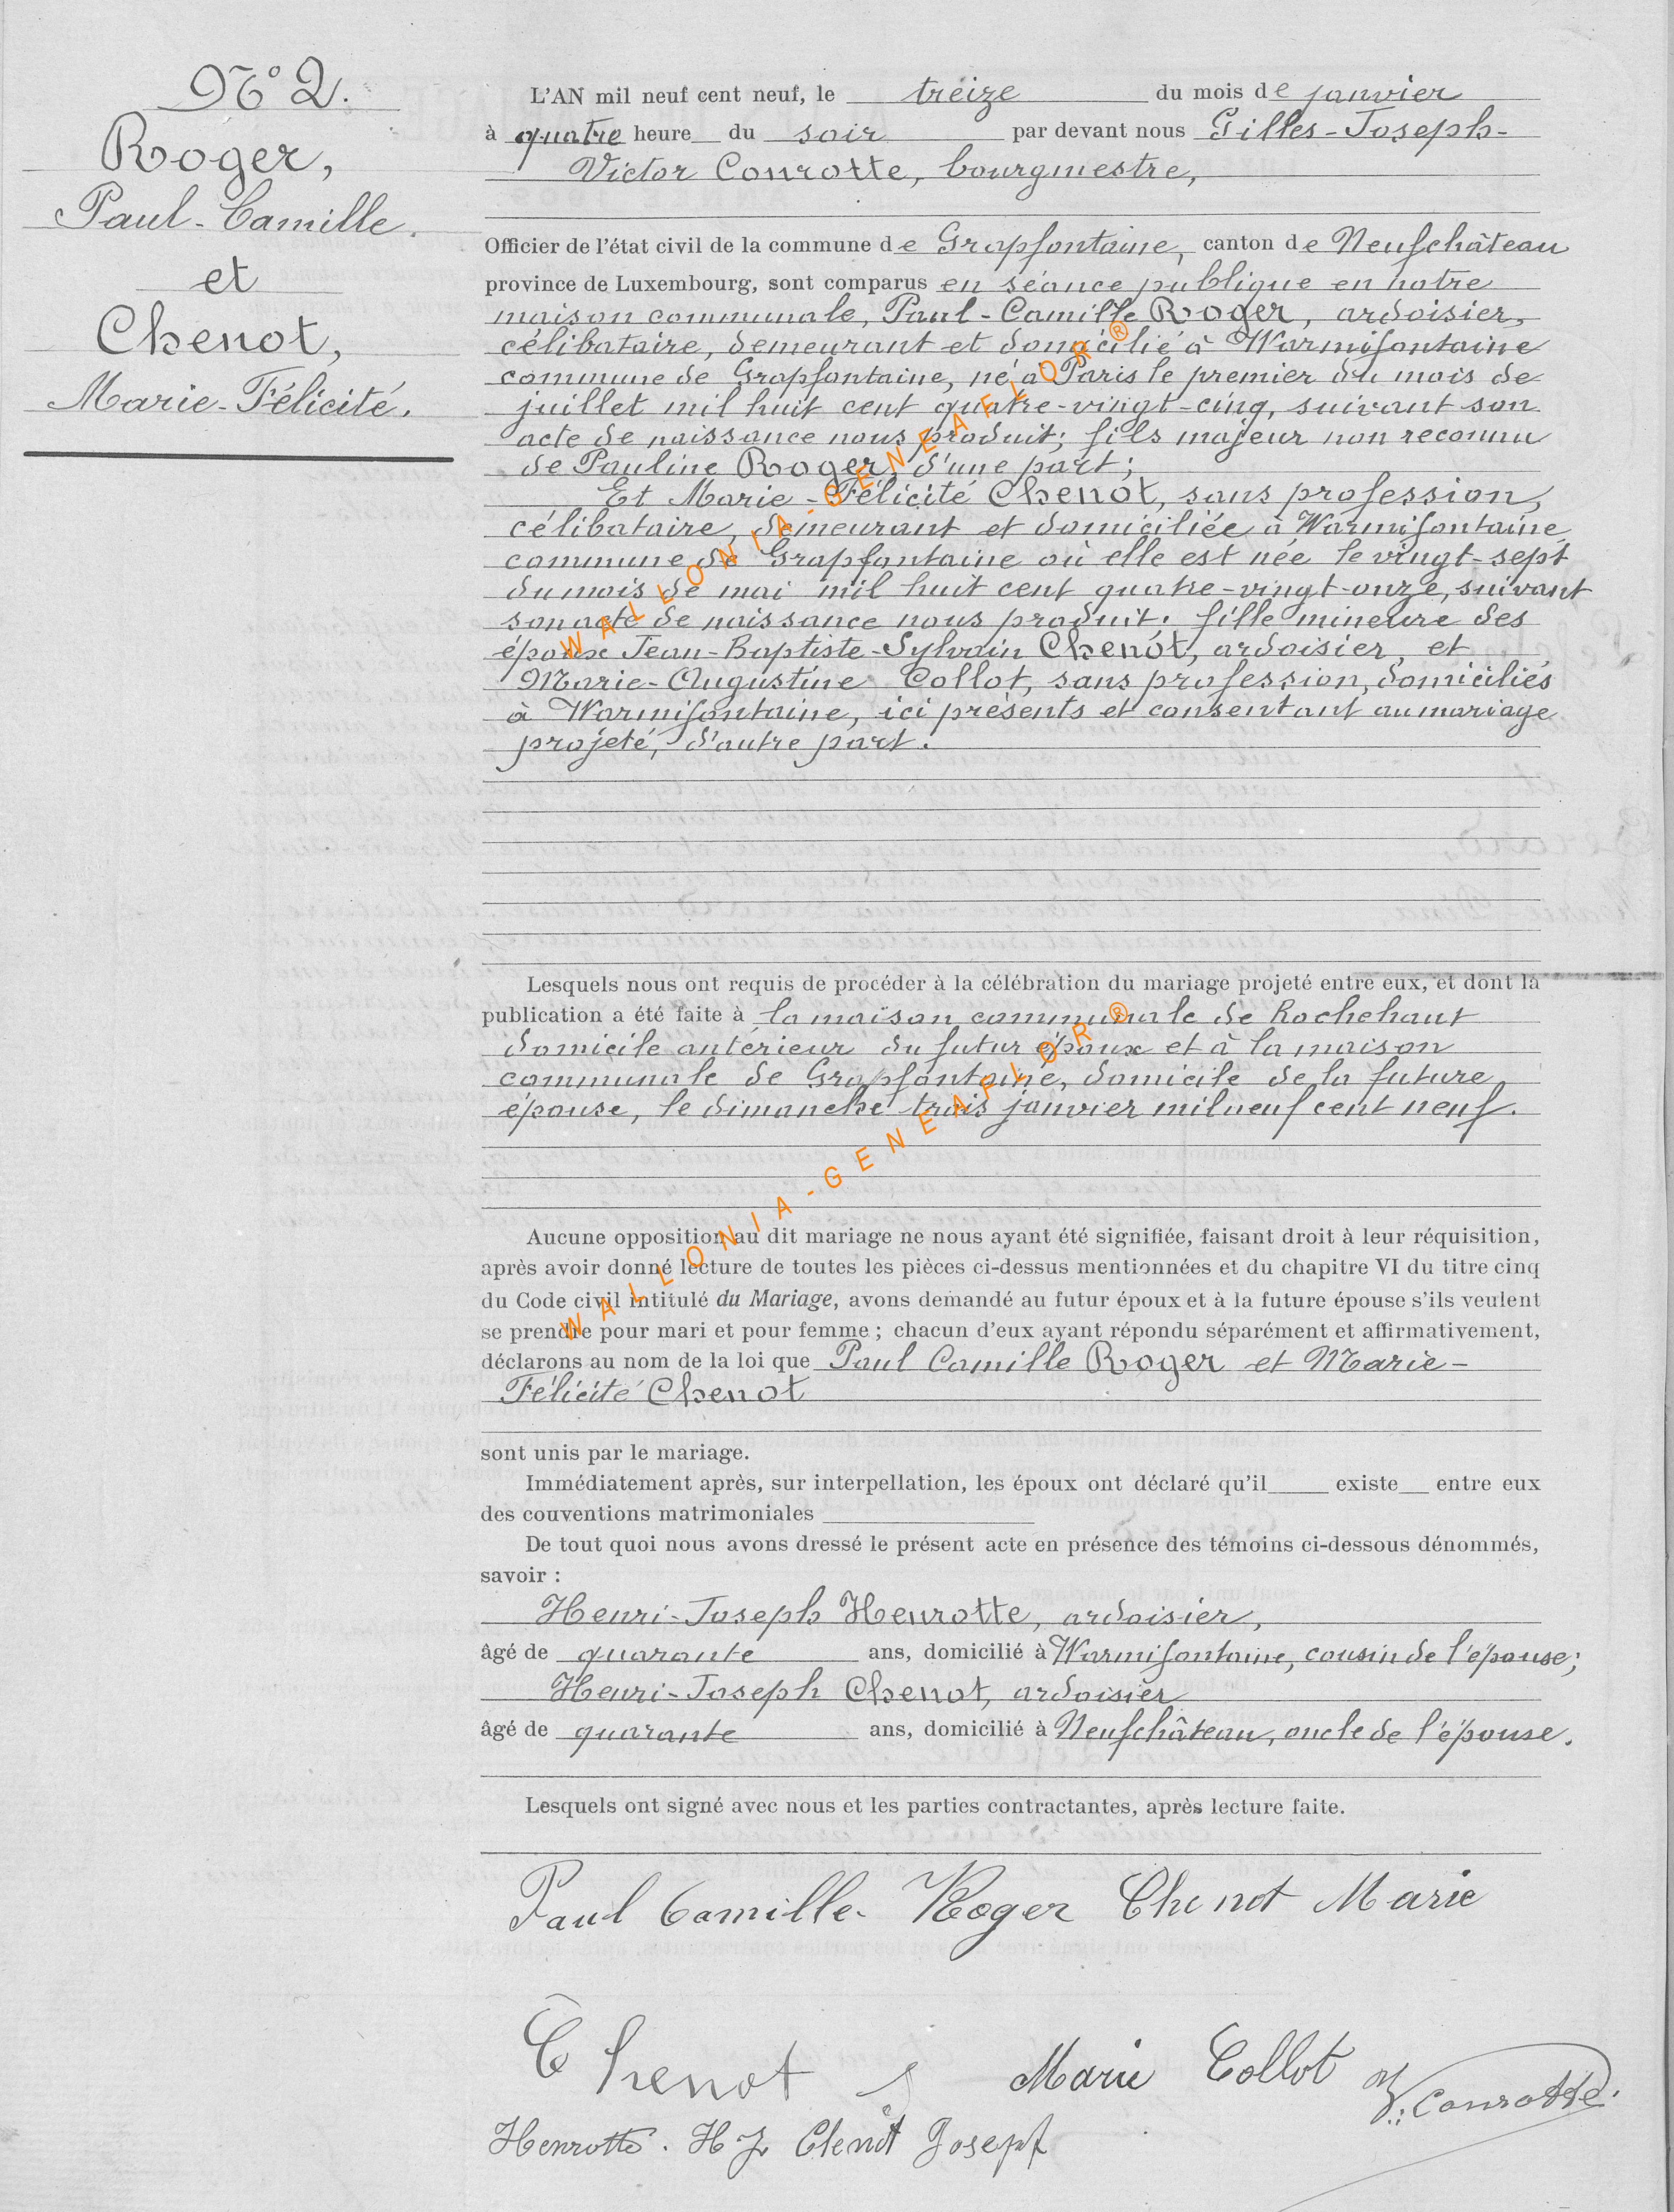 N° 2.
Roger,
Paul-Camille.
et
Chenot,
Marie-Félicité.
L'AN mil neuf cent neuf, le treize du mois de janvier
à quatre heure du soir par devant nous Gilles-Joseph-
Victor Conrotte, bourgmestre,
Officier de l'état civil de la commune de Grapfontaine, canton de Neufchâteau
province de Luxembourg, sont comparus en séance publique en notre
maison communale, Paul-Camille Roger, ardoisier,
célibataire, demeurant et domicilié à Warmifontaine
commune de Grapfontaine, né à Paris le premier du mois de
juillet mil huit cent quatre-vingt-cinq, suivant son
acte de naissance nous produit; fils majeur non reconnu
de Pauline Roger, d'une part;
Et Marie-Félicité Chenot, sans profession,
célibataire, demeurant et domiciliée à Warmifontaine,
commune de Grapfontaine où elle est née le vingt-sept
du mois de mai mil huit cent quatre-vingt-onze, suivant
son acte de naissance nous produit; fille mineure des
époux Jean-Baptiste-Sylvain Chenot, ardoisier, et
Marie-Augustine Collot, sans profession, domiciliés
à Warmifontaine, ici présents et consentant au mariage
projeté, d'autre part.
WALLONIA-GENEAFLOR®
Lesquels nous ont requis de procéder à la célébration du mariage projeté entre eux, et dont la
publication a été faite à la maison communale de Rochehaut
domicile antérieur du futur époux et à la maison
communale de Grapfontaine, domicile de la future
épouse, le dimanche trois janvier mil neuf cent neuf.
WALLONIA-GENEAFLOR®
Aucune opposition au dit mariage ne nous ayant été signifiée, faisant droit à leur réquisition,
après avoir donné lecture de toutes les pièces ci-dessus mentionnées et du chapitre VI du titre cinq
du Code civil intitulé du Mariage, avons demandé au futur époux et à la future épouse s'ils veulent
se prendre pour mari et pour femme ; chacun d'eux ayant répondu séparément et affirmativement,
déclarons au nom de la loi que Paul Camille Roger et Marie-
Félicité Chenot
sont unis par le mariage.
Immédiatement après, sur interpellation, les époux ont déclaré qu'il existe entre eux
des conventions matrimoniales
De tout quoi nous avons dressé le présent acte en présence des témoins ci-dessous dénommés,
savoir :
Henri-Joseph Henrotte, ardoisier,
âgé de quarante ans, domicilié à Warmifontaine, cousin de l'épouse;
Henri-Joseph Chenot, ardoisier
âgé de quarante ans, domicilié à Neufchâteau, oncle de l'épouse.
Lesquels ont signé avec nous et les parties contractantes, après lecture faite.
Paul Camille Roger Chenot Marie
Chenot J Marie Collot V. Conrotte.
Henrotte. H J Chenot Joseph